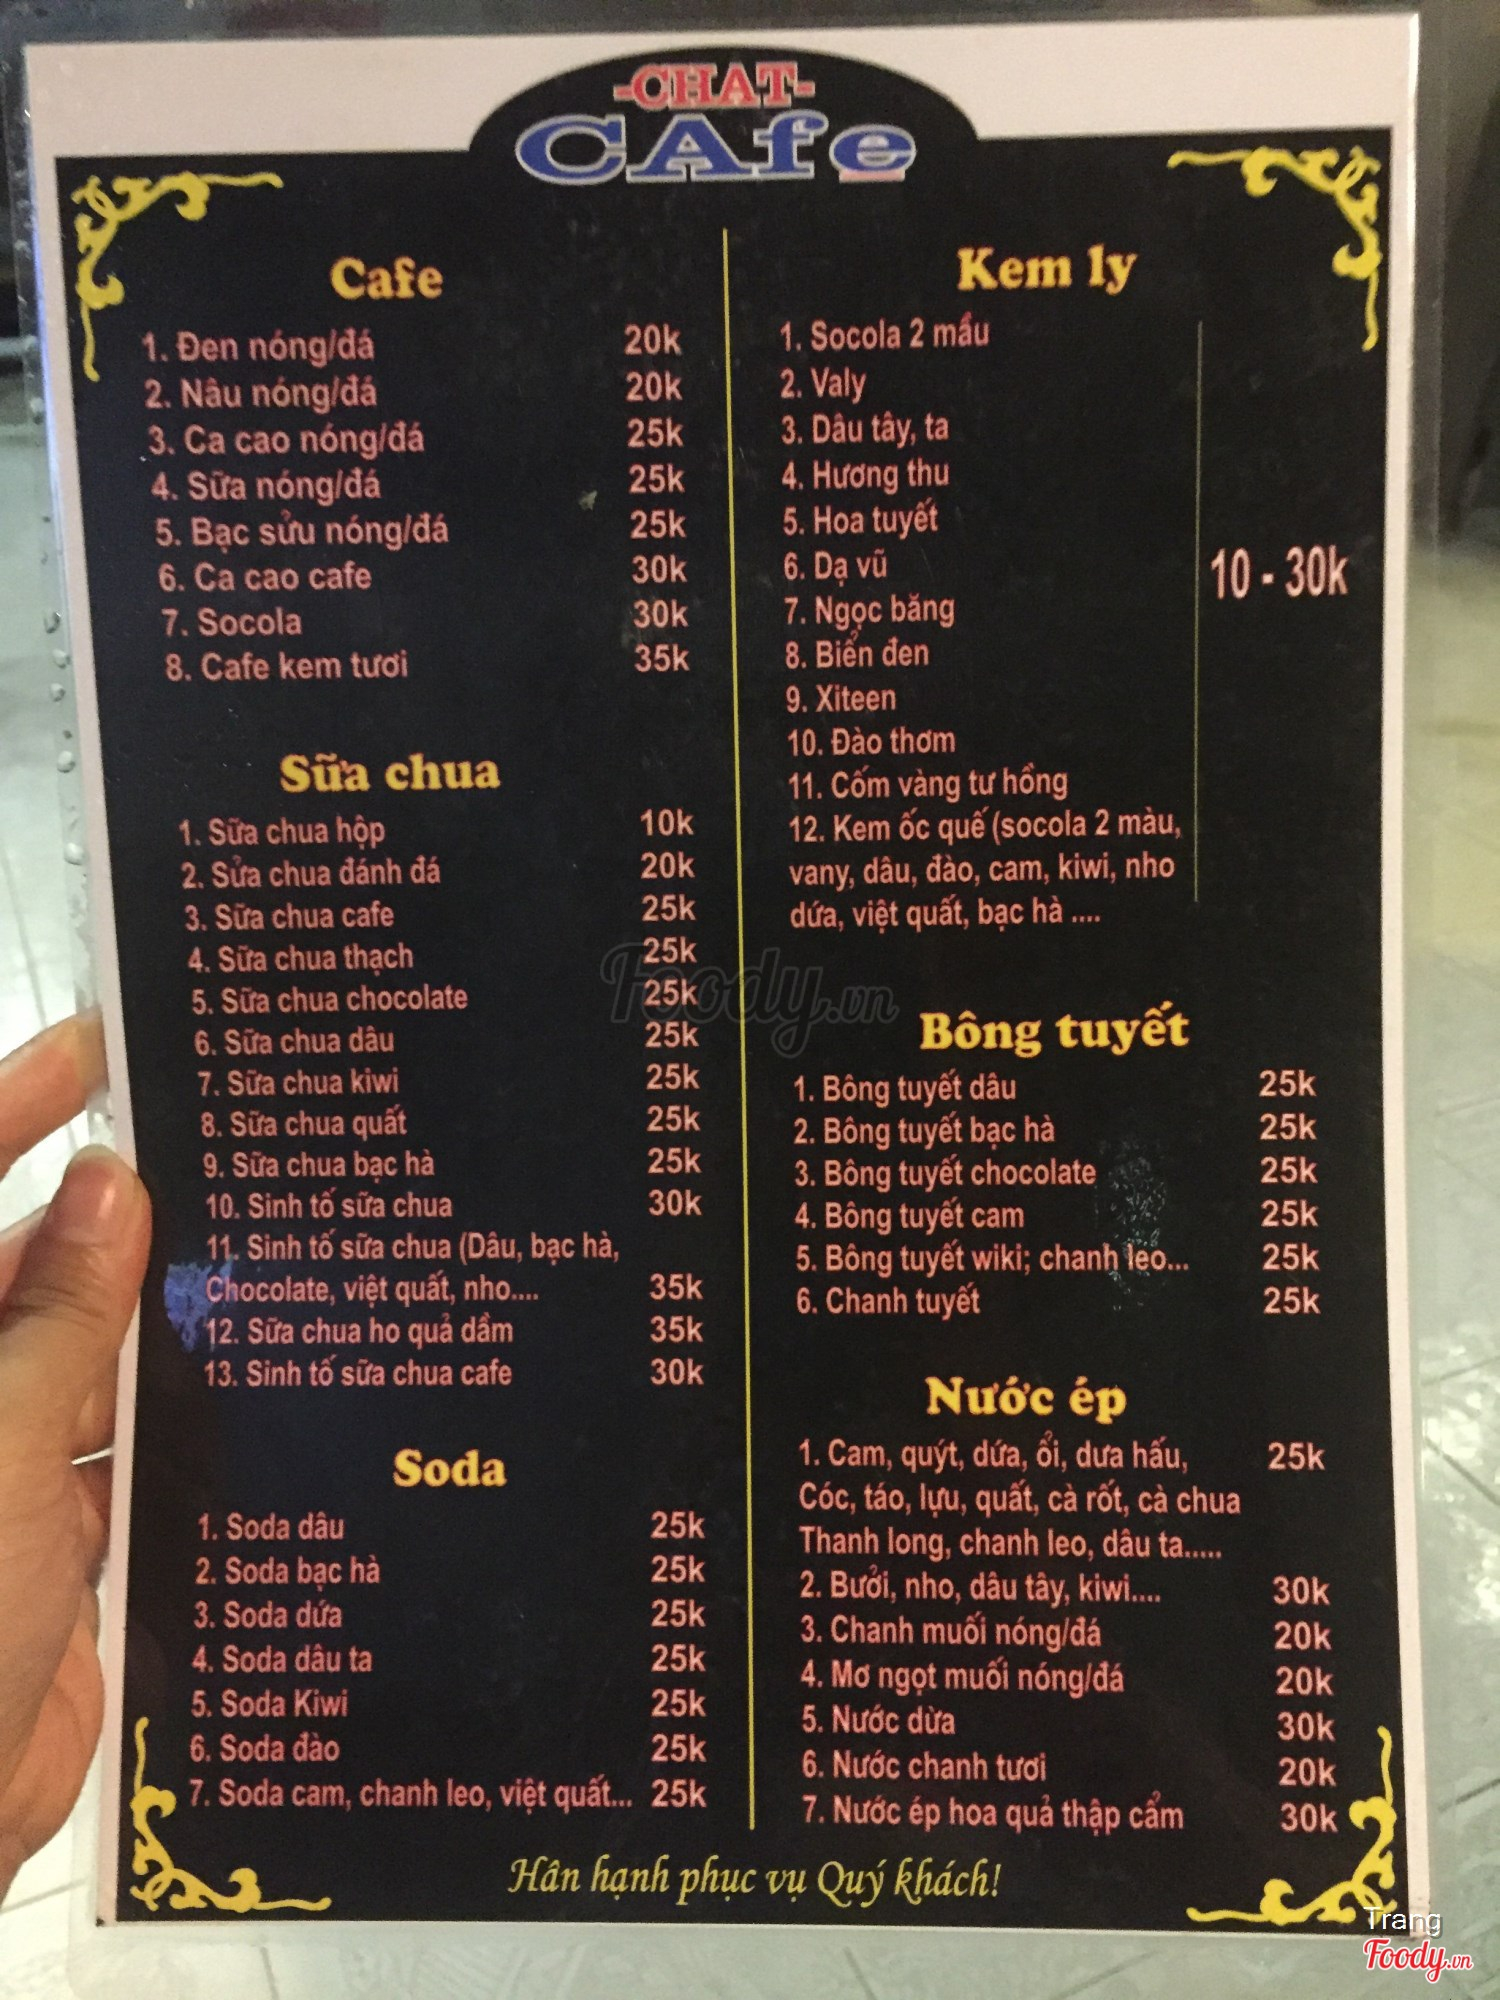 -CHAT-
CAfe
Cafe
1. Đen nóng/đá 20k
2. Nâu nóng/đá 20k
3. Ca cao nóng/đá 25k
4. Sữa nóng/đá 25k
5. Bạc sửu nóng/đá 25k
6. Ca cao cafe 30k
7. Socola 30k
8. Cafe kem tươi 35k
Sữa chua
1. Sữa chua hộp 10k
2. Sửa chua đánh đá 20k
3. Sữa chua cafe 25k
4. Sữa chua thạch 25k
5. Sữa chua chocolate 25k
6. Sữa chua dâu 25k
7. Sữa chua kiwi 25k
8. Sữa chua quất 25k
9. Sữa chua bạc hà 25k
10. Sinh tố sữa chua 30k
11. Sinh tố sữa chua (Dâu, bạc hà,
Chocolate, việt quất, nho.... 35k
12. Sữa chua ho quả dầm 35k
13. Sinh tố sữa chua cafe 30k
Soda
1. Soda dâu 25k
2. Soda bạc hà 25k
3. Soda dứa 25k
4. Soda dâu ta 25k
5. Soda Kiwi 25k
6. Soda đào 25k
7. Soda cam, chanh leo, việt quất... 25k
Kem ly
1. Socola 2 mầu
2. Valy
3. Dâu tây, ta
4. Hương thu
5. Hoa tuyết
6. Dạ vũ
7. Ngọc băng
8. Biển đen
9. Xiteen
10. Đào thơm
11. Cốm vàng tư hồng
12. Kem ốc quế (socola 2 màu,
vany, dâu, đào, cam, kiwi, nho
dứa, việt quất, bạc hà ....
10 - 30k
Bông tuyết
1. Bông tuyết dâu 25k
2. Bông tuyết bạc hà 25k
3. Bông tuyết chocolate 25k
4. Bông tuyết cam 25k
5. Bông tuyết wiki; chanh leo... 25k
6. Chanh tuyết 25k
Nước ép
1. Cam, quýt, dứa, ổi, dưa hấu, 25k
Cóc, táo, lựu, quất, cà rốt, cà chua
Thanh long, chanh leo, dâu ta.....
2. Bưởi, nho, dâu tây, kiwi.... 30k
3. Chanh muối nóng/đá 20k
4. Mơ ngọt muối nóng/đá 20k
5. Nước dừa 30k
6. Nước chanh tươi 20k
7. Nước ép hoa quả thập cẩm 30k
Hân hạnh phục vụ Quý khách!
Foody.vn
Trang
Foody.vn